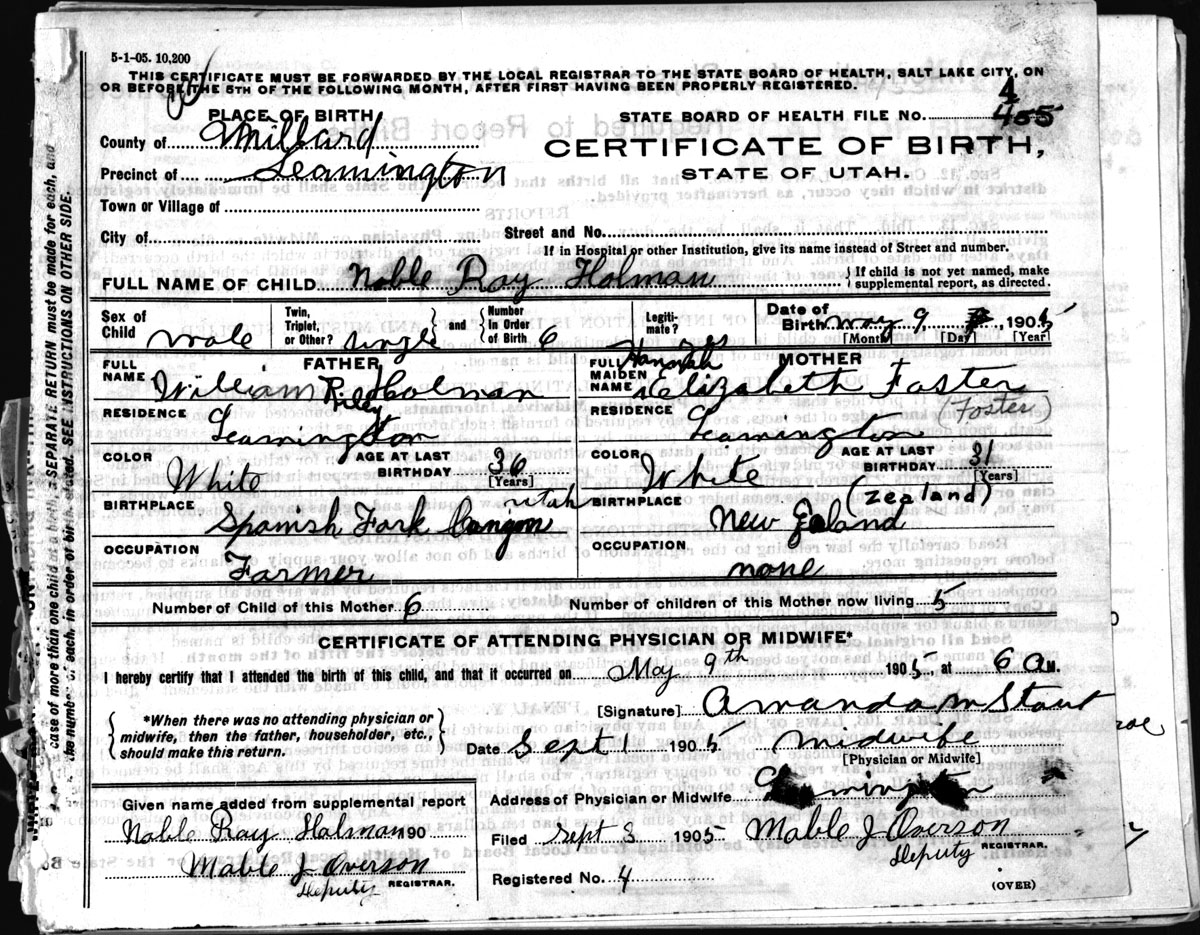 5-1-05. 10,200
THIS CERTIFICATE MUST BE FORWARDED BY THE LOCAL REGISTRAR TO THE STATE BOARD OF HEALTH, SALT LAKE CITY, ON
OR BEFORE THE 5TH OF THE FOLLOWING MONTH, AFTER FIRST HAVING BEEN PROPERLY REGISTERED.
4
PLACE OF BIRTH
STATE BOARD OF HEALTH FILE No. 455
County of Millard
CERTIFICATE OF BIRTH,
Precinct of Leamington
STATE OF UTAH.
Town or Village of
City of
Street and No.
If in Hospital or other Institution, give its name instead of Street and number.
FULL NAME OF CHILD Noble Ray Holman
If child is not yet named, make supplemental report, as directed.
Sex of Child Male
Twin, Triplet, or Other? single and Number in Order of Birth 6
Legitimate? yes
Date of Birth May 9 1905
[Month] [Day] [Year]
FATHER
FULL NAME William Riley Holman
RESIDENCE Leamington
COLOR White
AGE AT LAST BIRTHDAY 36 [Years]
BIRTHPLACE Spanish Fork Canyon Utah
OCCUPATION Farmer
MOTHER
FULL MAIDEN NAME Hannah Elizabeth Faster
(Foster)
RESIDENCE Leamington
COLOR White
AGE AT LAST BIRTHDAY 31 (Years)
BIRTHPLACE New Zeland
(Zealand)
OCCUPATION none
Number of Child of this Mother 6
Number of children of this Mother now living 5
CERTIFICATE OF ATTENDING PHYSICIAN OR MIDWIFE*
I hereby certify that I attended the birth of this child, and that it occurred on May 9th 1905, at 6 a M.
*When there was no attending physician or
midwife, then the father, householder, etc.,
should make this return.
[Signature] Amanda M Stout
Date Sept 1 1905 midwife
[Physician or Midwife]
Address of Physician or Midwife Leamington
Given name added from supplemental report
Noble Ray Holman 190
Mable J Overson
Deputy REGISTRAR.
Filed Sept 3 1905 Mable J Overson
Deputy REGISTRAR.
Registered No. 4
(OVER)
case of more than one child at a birth, a SEPARATE RETURN must be made for each, and
the number of each, in order of birth, stated. SEE INSTRUCTIONS ON OTHER SIDE.